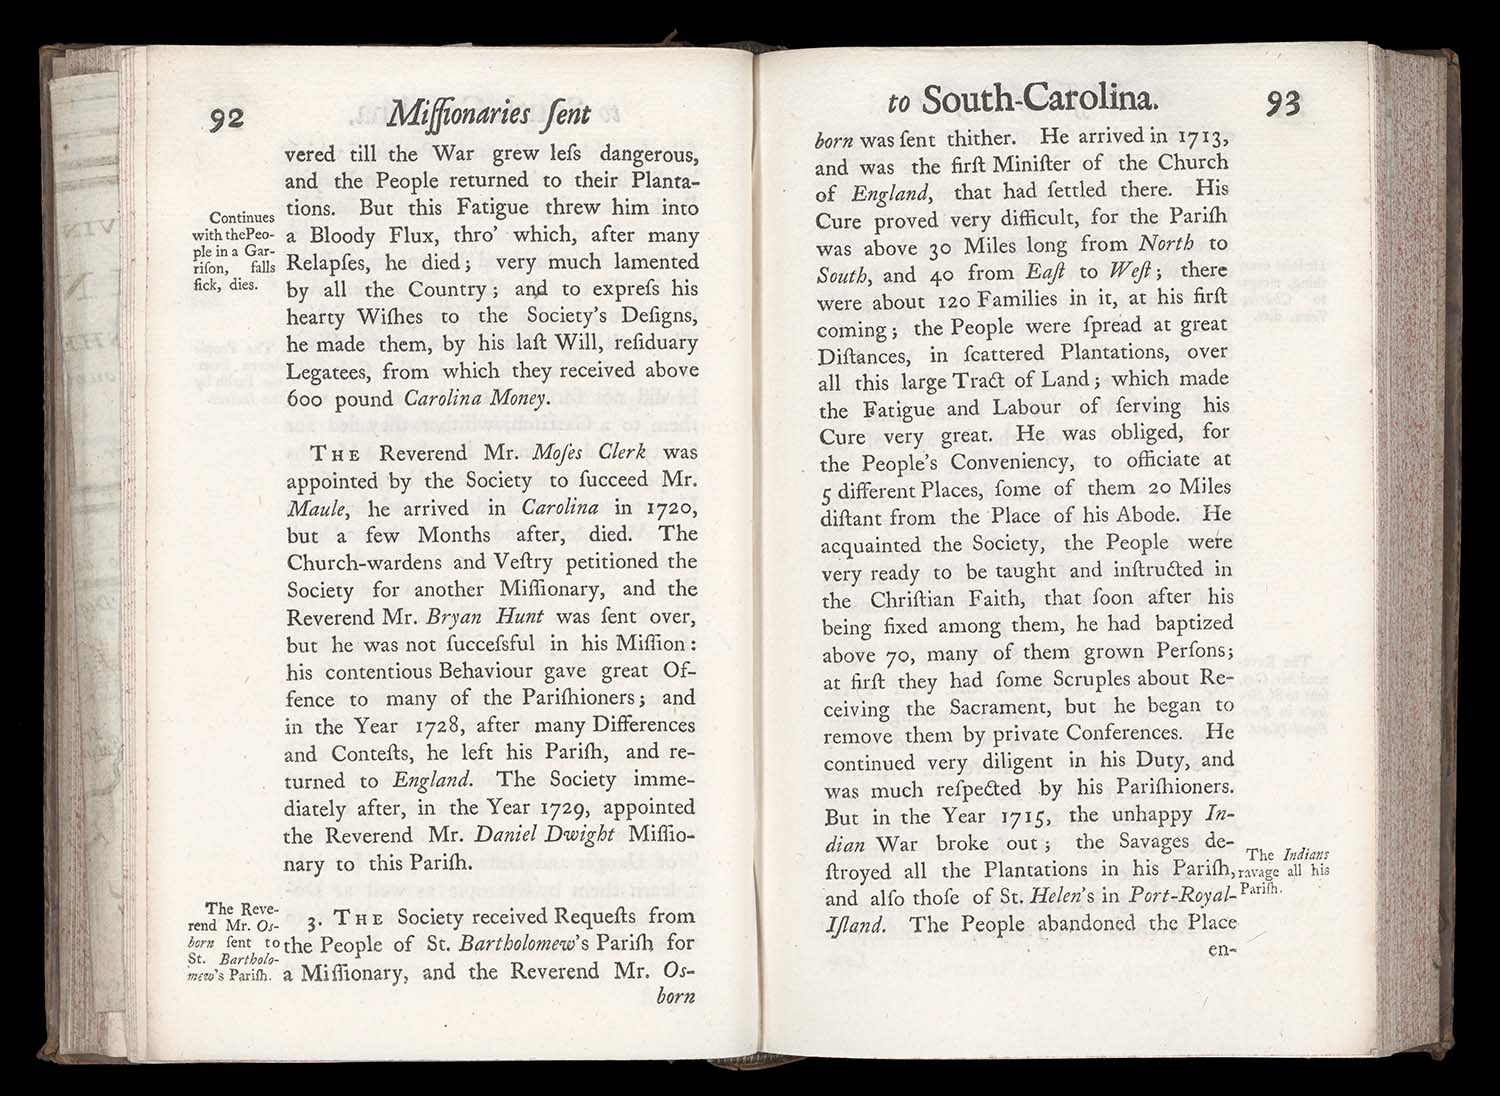 92
Miſſionaries ſent
vered till the War grew leſs dangerous,
and the People returned to their Planta-
tions. But this Fatigue threw him into
a Bloody Flux, thro' which, after many
Relapſes, he died; very much lamented
by all the Country; and to expreſs his
hearty Wiſhes to the Society's Deſigns,
he made them, by his laſt Will, reſiduary
Legatees, from which they received above
600 pound Carolina Money.
Continues
with thePeo-
ple in a Gar-
riſon, falls
ſick, dies.
THE Reverend Mr. Moſes Clerk was
appointed by the Society to ſucceed Mr.
Maule, he arrived in Carolina in 1720,
but a few Months after, died. The
Church-wardens and Veſtry petitioned the
Society for another Miſſionary, and the
Reverend Mr. Bryan Hunt was ſent over,
but he was not ſucceſsful in his Miſſion:
his contentious Behaviour gave great Of-
fence to many of the Pariſhioners; and
in the Year 1728, after many Differences
and Conteſts, he left his Pariſh, and re-
turned to England. The Society imme-
diately after, in the Year 1729, appointed
the Reverend Mr. Daniel Dwight Miſſio-
nary to this Pariſh.
The Reve-
rend Mr. Os-
born ſent to
St. Bartholo-
mew's Pariſh.
3. THE Society received Requeſts from
the People of St. Bartholomew's Pariſh for
a Miſſionary, and the Reverend Mr. Os-
born
to South-Carolina.
93
born was ſent thither. He arrived in 1713,
and was the firſt Miniſter of the Church
of England, that had ſettled there. His
Cure proved very difficult, for the Pariſh
was above 30 Miles long from North to
South, and 40 from Eaſt to Weſt; there
were about 120 Families in it, at his firſt
coming; the People were ſpread at great
Diſtances, in ſcattered Plantations, over
all this large Tract of Land; which made
the Fatigue and Labour of ſerving his
Cure very great. He was obliged, for
the People's Conveniency, to officiate at
5 different Places, ſome of them 20 Miles
diſtant from the Place of his Abode. He
acquainted the Society, the People were
very ready to be taught and inſtructed in
the Chriſtian Faith, that ſoon after his
being fixed among them, he had baptized
above 70, many of them grown Perſons;
at firſt they had ſome Scruples about Re-
ceiving the Sacrament, but he began to
remove them by private Conferences. He
continued very diligent in his Duty, and
was much reſpected by his Pariſhioners.
But in the Year 1715, the unhappy In-
dian War broke out; the Savages de-
ſtroyed all the Plantations in his Pariſh,
and alſo thoſe of St. Helen's in Port-Royal-
Iſland. The People abandoned the Place
en-
The Indians
ravage all his
Pariſh.